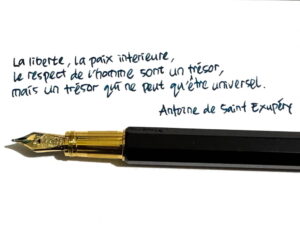 La liberté, la paix intérieure,
le respect de l'homme sont un trésor,
mais un trésor qui ne peut qu'être universel.
Antoine de Saint Exupéry